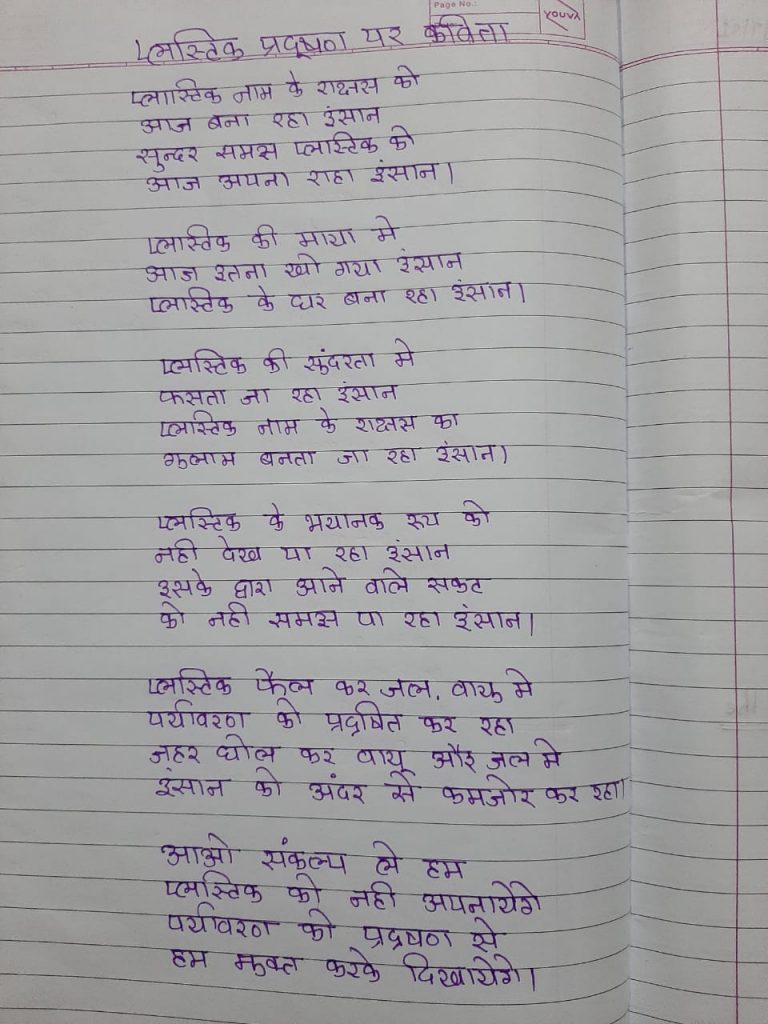 Page No.:
YOUVA
प्लास्टिक प्रदूषण पर कविता
प्लास्टिक नाम के राक्षस को
आज बना रहा इंसान
सुन्दर समझ प्लास्टिक को
आज अपना राहा इंसान।
प्लास्टिक की माया मे
आज इतना खो गया इंसान
प्लास्टिक के घर बना रहा इंसान।
प्लास्टिक की सुंदरता मे
फसता जा रहा इंसान
प्लास्टिक नाम के राक्षस का
गुलाम बनता जा रहा इंसान।
प्लास्टिक के भयानक रूप को
नही देख पा रहा इंसान
इसके द्वारा आने वाले सकट
को नही समझ पा रहा इंसान।
प्लास्टिक फैल कर जल, वायु मे
पर्यावरण को प्रदूषित कर रहा
जहर घोल कर वायु और जल मे
इंसान को अंदर से कमजोर कर रहा।
आओ संकल्प ले हम
प्लास्टिक को नही अपनायेंगे
पर्यावरण को प्रदूषण से
हम मुक्त करके दिखायेंगे।
the